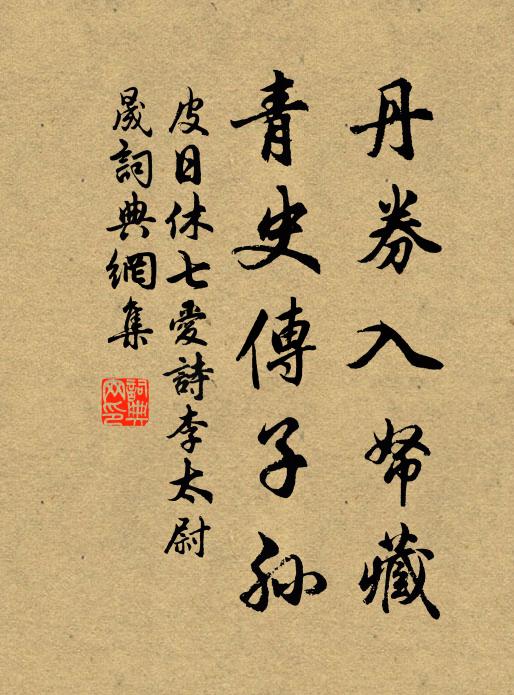 丹券入帑藏
青史傳子孫
皮日休七愛詩李太尉
晟詞典網集
詞典
网印